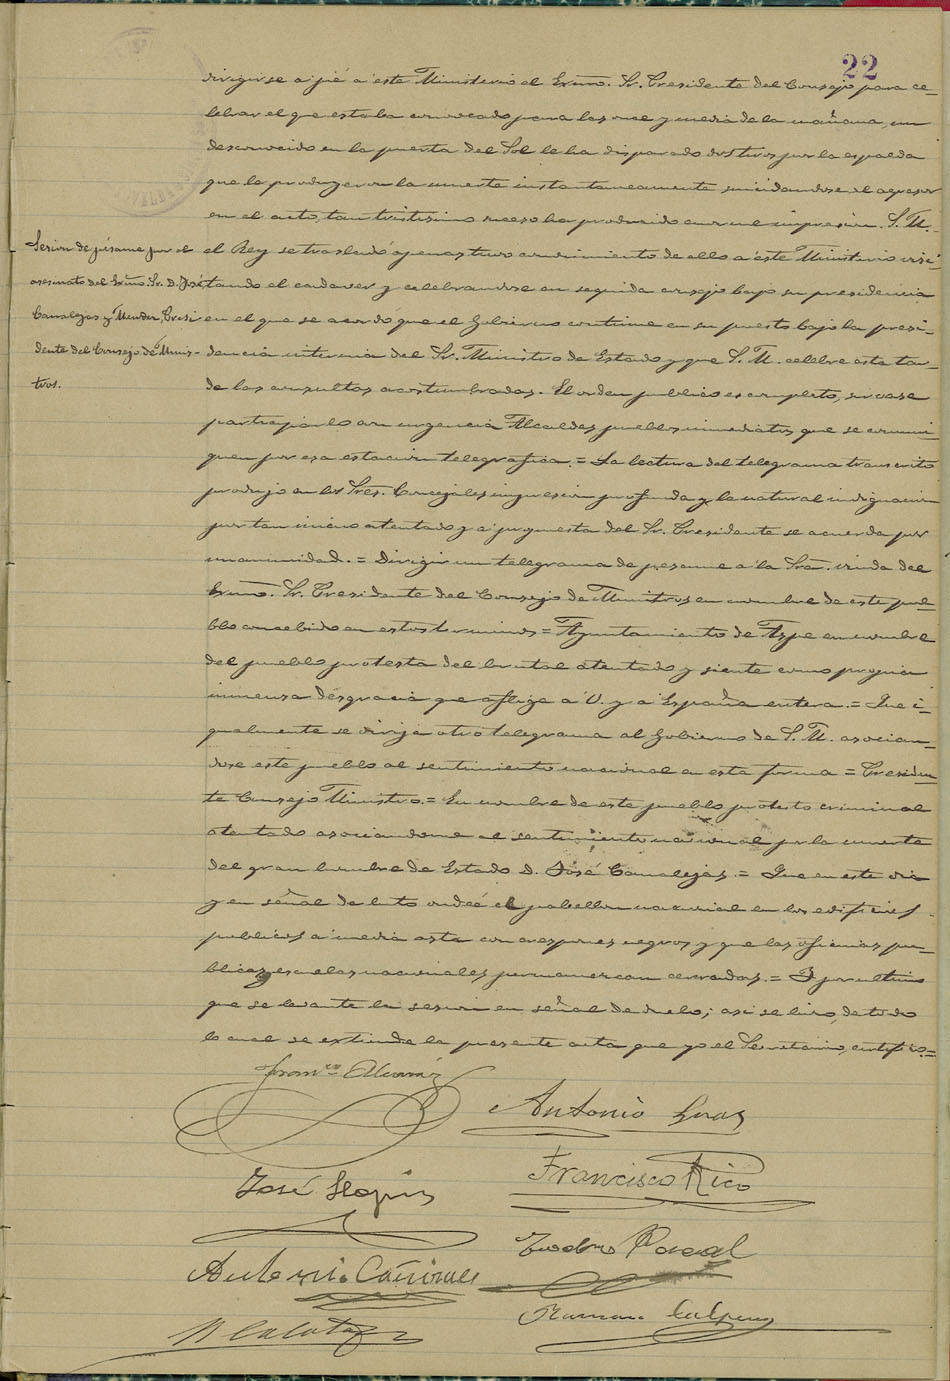 22
dirigirse a pié á este Ministerio el Exmo. Sr. Presidente del Consejo para ce-
lebrar el que estaba convocado para las once y media de la mañana, un
desconocido en la puerta del Sol le ha disparado dos tiros por la espalda
que le produjeron la muerte instantaneamente suicidandose el agresor
en el acto, tan tristisimo suceso ha producido enorme impresion. S. M.
el Rey se trasladó apenas tuvo conocimiento de ello a este Ministerio visi-
tando el cadaver y celebrandose en seguida consejo bajo su presidencia
en el que se acordó que el Gobierno continue en su puesto bajo la presi-
dencia interina del Sr. Ministro de Estado y que S. M. celebre esta tar-
de las consultas acostumbradas. El orden publico es completo, sirvase
participarlo con urgencia Alcaldes pueblos inmediatos que se comuni-
quen por esa estacion telegrafica. = La lectura del telegrama transcrito
produjo en los Sres. Concejales impresion profunda y la natural indignacion
por tan inicuo atentado y a propuesta del Sr. Presidente se acuerda por
unanimidad. = Dirigir un telegrama de pesame a la Sra. viuda del
Exmo. Sr. Presidente del Consejo de Ministros en nombre de este pue-
blo concebido en estos terminos = Ayuntamiento de Aspe en nombre
del pueblo protesta del brutal atentado y siente como propia
inmensa desgracia que aflige á V. y a España entera. = Que i-
gualmente se dirija otro telegrama al Gobierno de S. M. asocian-
dose este pueblo al sentimiento nacional en esta forma = Presiden-
te Consejo Ministros. = En nombre de este pueblo protesto criminal
atentado asociandome al sentimiento nacional por la muerte
del gran hombre de Estado D. José Canalejas. = Que en este dia
y en señal de luto ondeé el pabellon nacional en los edificios
publicos a media asta con crespones negros y que las oficinas pu-
blicas, escuelas nacionales permanezcan cerradas. = Y por ultimo
que se levante la sesion en señal de duelo; asi se hizo, de todo
lo cual se extiende la presente acta que yo el Secretario, certifico. =
Sesion de pésame por el
asesinato del Exmo. Sr. D. José
Canalejas y Mendez, Presi-
dente del Consejo de Minis-
tros.
Franco Alcaraz
Antonio
José
Francisco Rico
Teodoro Pascual
Antonio Cañizares
Ramon